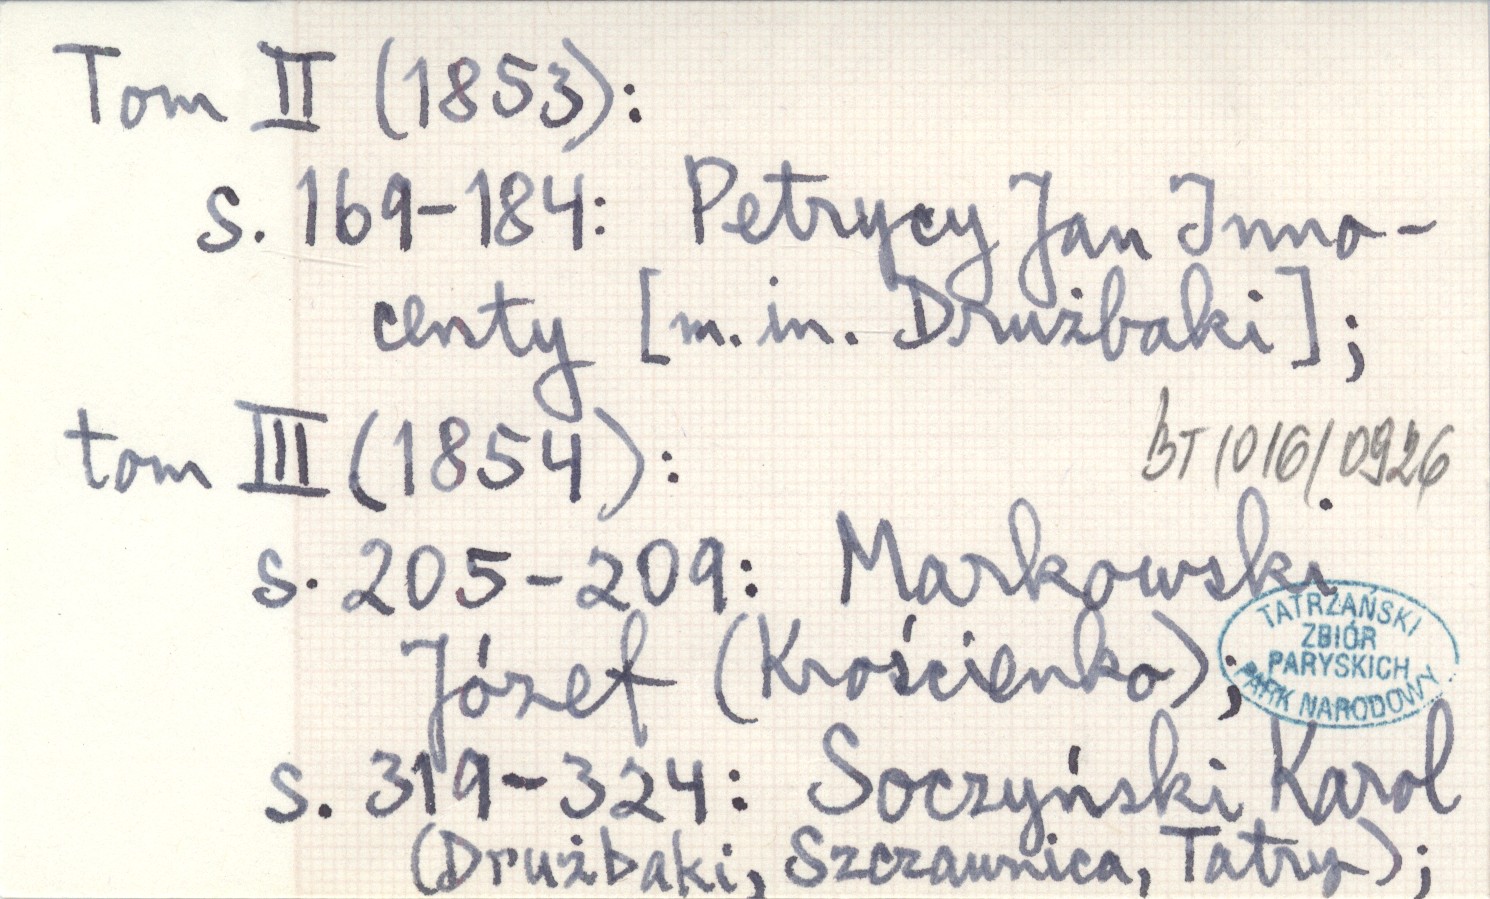 Tom II (1853):
s. 169-184: Petrycy Jan Inno-
centy [m.in. Drużbaki];
tom III (1854):
BT/016/0926
s. 205-209: Markowski
Józef (Krościenko);
TATRZAŃSKI
ZBIÓR
PARYSKICH
PARK NARODOWY
s. 319-324: Soczyński Karol
(Drużbaki, Szczawnica, Tatry);